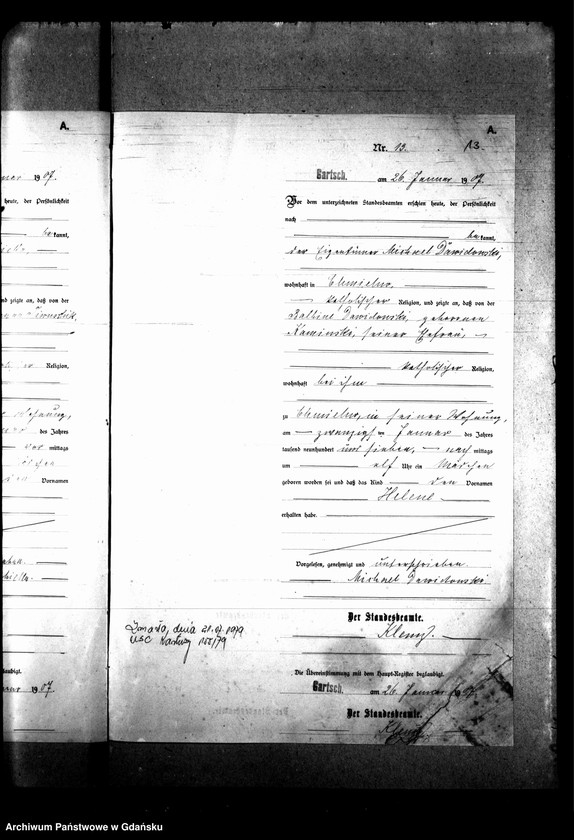 A.
1907.
heute, der Persönlichkeit
bekannt,
und zeigte an, daß von der
Religion,
Wohnung,
des Jahres
mittags
Vornamen
1907.
A.
Nr. 13.
13
Gartsch. am 26. Januar 1907.
Vor dem unterzeichneten Standesbeamten erschien heute, der Persönlichkeit
nach
bekannt,
der Eigentümer Michael Dawidowski,
wohnhaft in Chmielno,
katholischer Religion, und zeigte an, daß von der
Dawidowski, geborenen
Kaminski, seiner Ehefrau,
katholischer Religion,
wohnhaft bei ihm
zu Chmielno, in seiner Wohnung,
am zwanzigsten Januar des Jahres
tausend neunhundert und sieben, nach mittags
um elf Uhr ein Mädchen
geboren worden sei und daß das Kind den Vornamen
Helene
erhalten habe.
Vorgelesen, genehmigt und unterschrieben.
Michael Dawidowski
Der Standesbeamte.
dnia 21.07.1979
USC 105/79
Die Übereinstimmung mit dem Haupt-Register beglaubigt.
Gartsch. am 26. Januar 1907.
Der Standesbeamte.
Archiwum Państwowe w Gdańsku